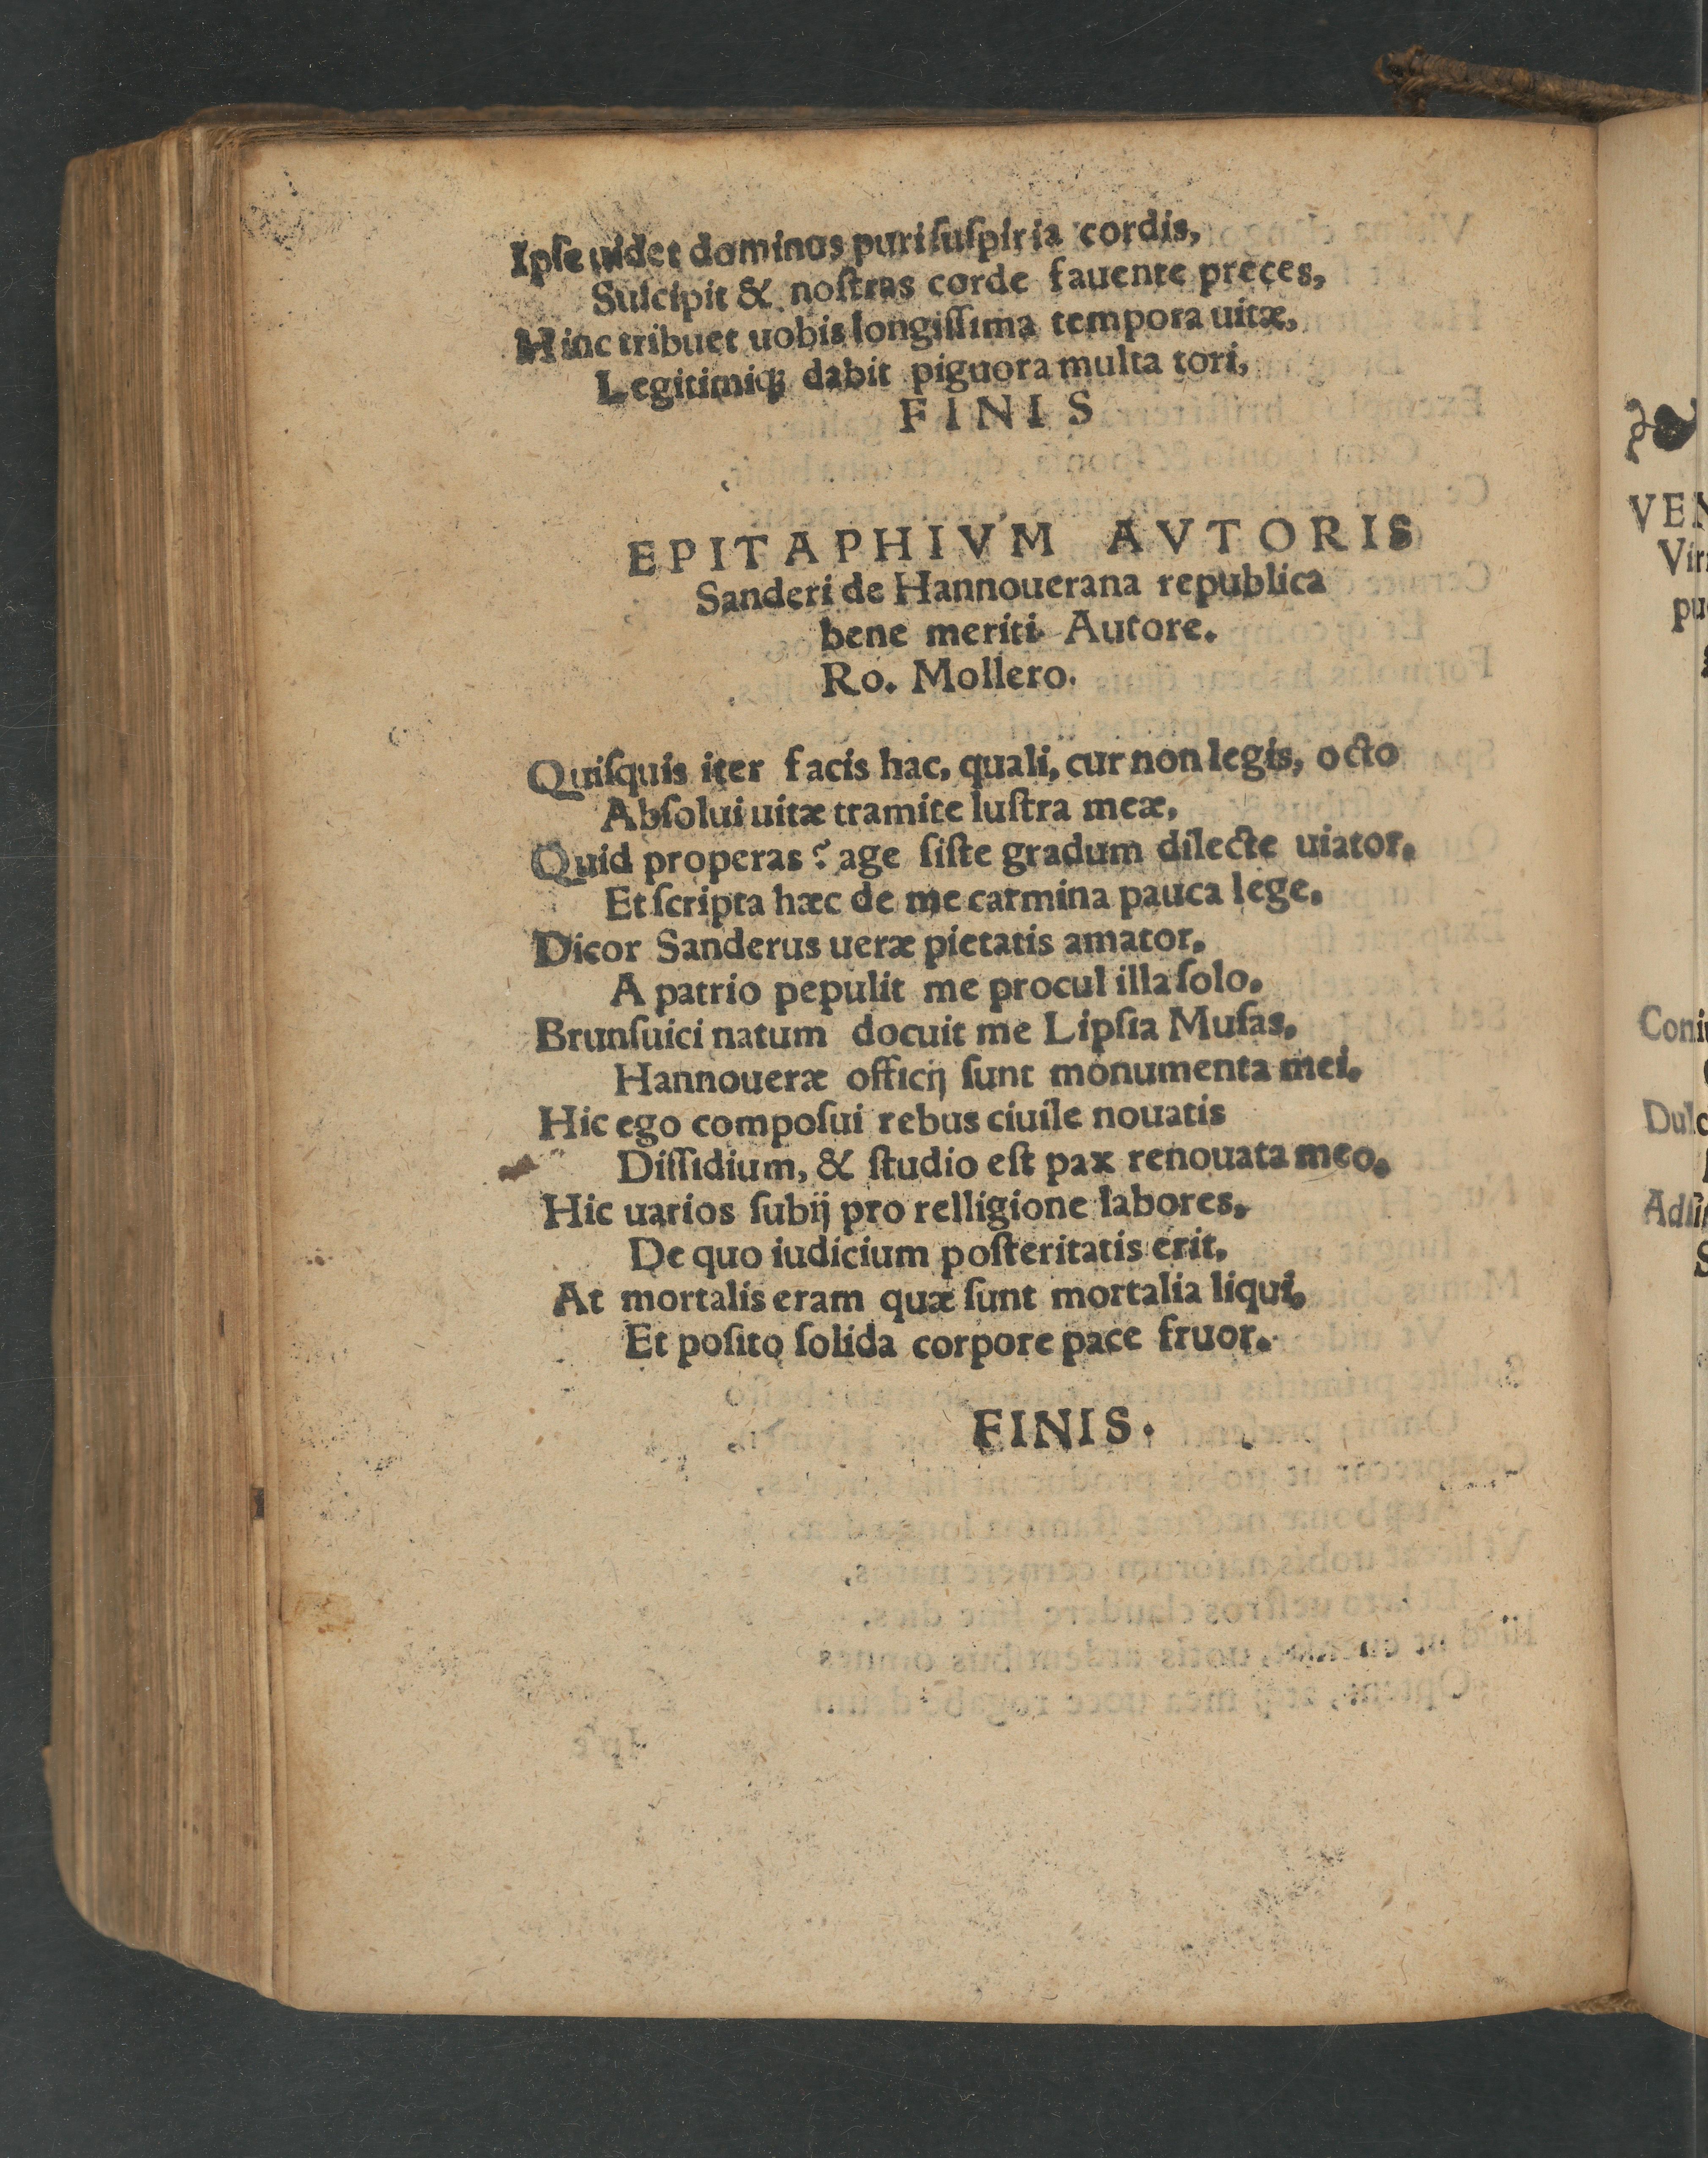 Ipſe uidet dominus puri ſuſpiria cordis,
Suſcipit & noſtras corde fauente preces,
Hinc tribuet uobis longiſſima tempora uitæ,
Legitimiqꝫ dabit piguora multa tori,
FINIS
EPITAPHIVM AVTORIS
Sanderi de Hannouerana republica
bene meriti. Autore.
Ro. Mollero.
Quiſquis iter facis hac, quali, cur non legis, octo
Abſolui uitæ tramite luſtra meæ,
Quid properas? age ſiſte gradum dilecte uiator.
Et ſcripta hæc de me carmina pauca lege.
Dicor Sanderus ueræ pietatis amator.
A patrio pepulit me procul illa ſolo.
Brunſuici natum docuit me Lipſia Muſas.
Hannoueræ officij ſunt monumenta mei.
Hic ego compoſui rebus ciuile nouatis
Diſſidium, & ſtudio eſt pax renouata meo.
Hic uarios ſubij pro relligione labores.
De quo iudicium poſteritatis erit.
At mortalis eram quæ ſunt mortalia liqui.
Et poſito ſolida corpore pace fruor.
FINIS.